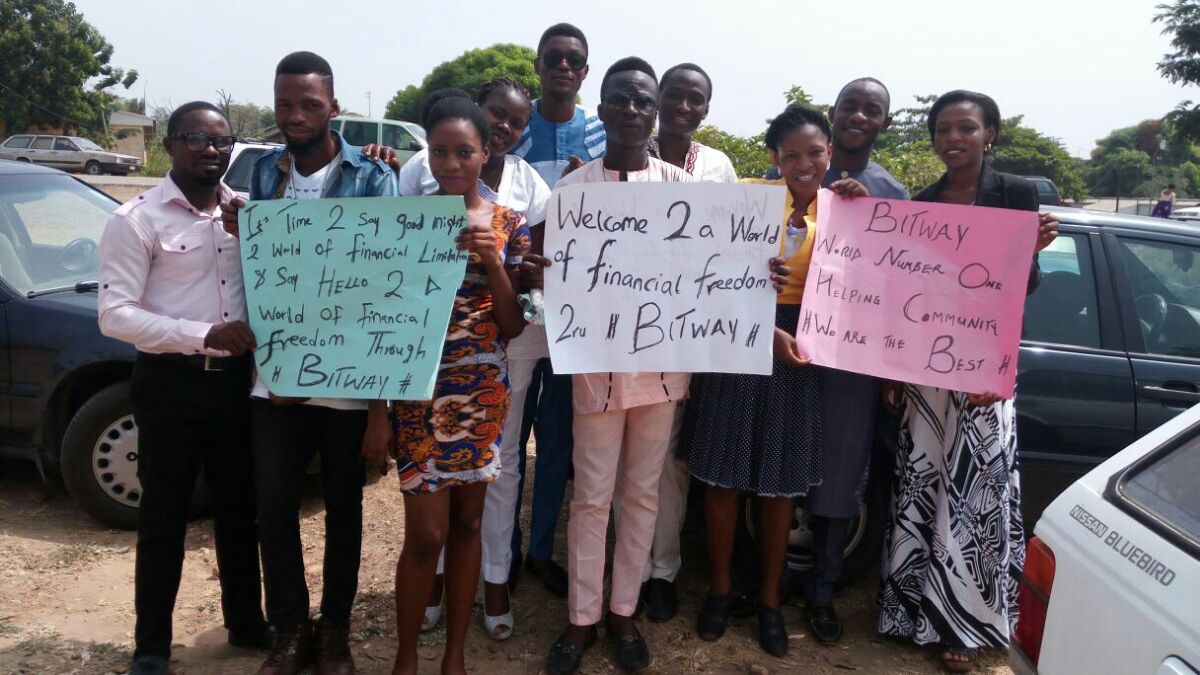 Its Time 2 Say good night
2 World of Financial Limitation
& Say Hello 2 A
World of Financial
freedom Through
# BITWAY #
Welcome 2 a World
of financial freedom
2ru # BITWAY #
BITWAY
World Number One
Helping Community
#We are the Best #
NISSAN BLUEBIRD